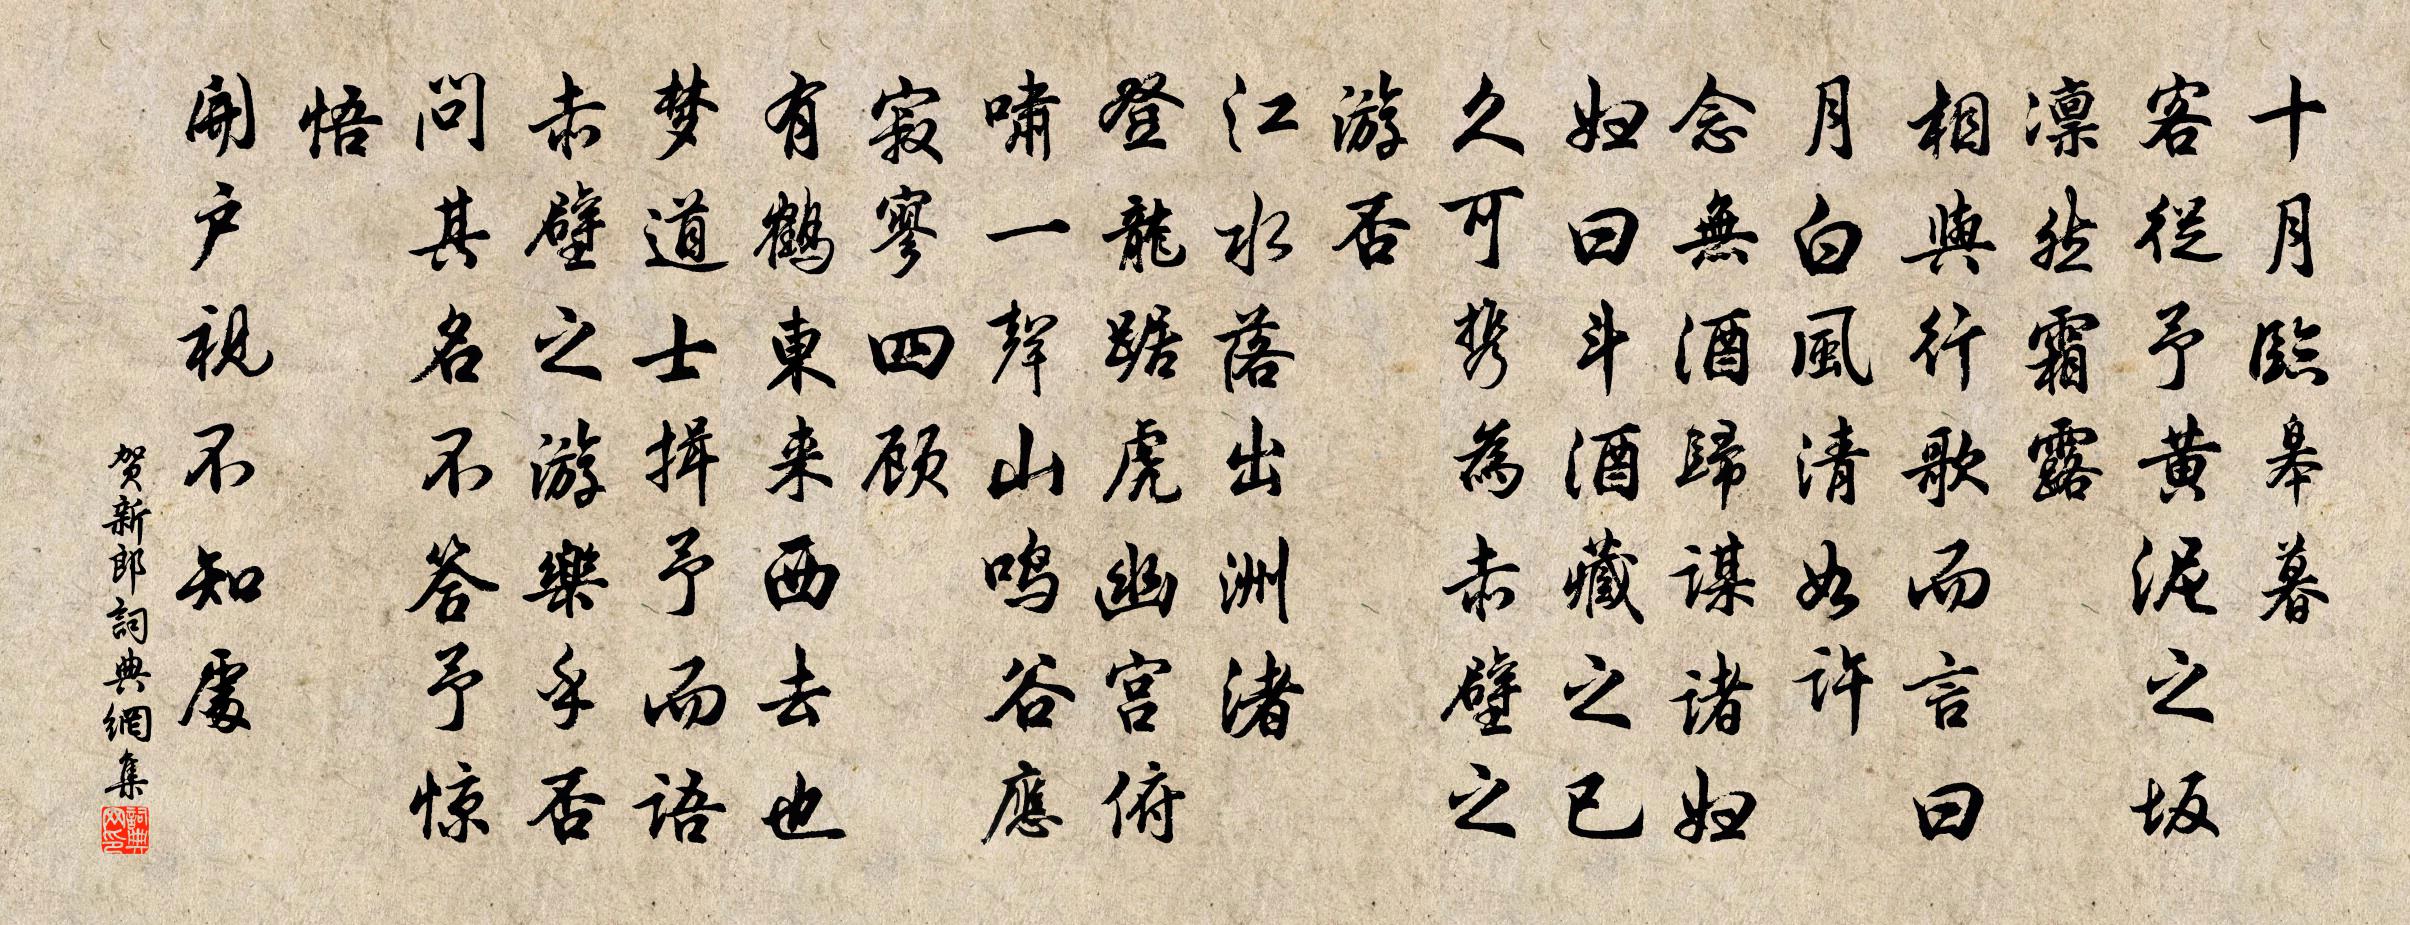 十月臨皋暮
客從予黃泥之坂
凜然霜露
相與行歌而言曰
月白風清如許
念無酒歸謀諸婦
婦曰斗酒藏之已
久可携為赤壁之
游否
江水落出洲渚
登龍踞虎幽宮俯
嘯一聲山鳴谷應
寂寥四顧
有鶴東来西去也
梦道士揖予而語
赤壁之游樂乎否
問其名不答予惊
悟
開户視不知處
贺新郎詞典網集
詞典网印